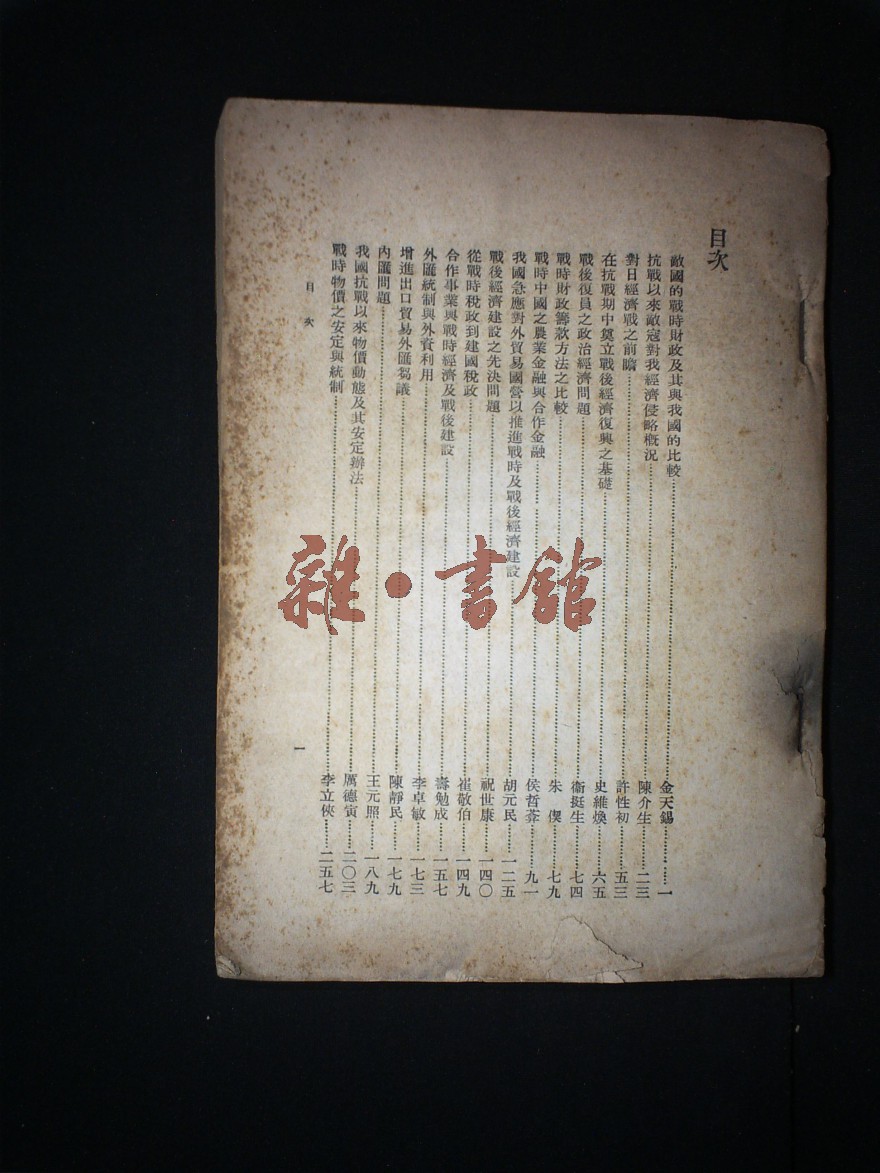 目次
敵國的戰時財政及其與我國的比較……金天錫……一
抗戰以來敵寇對我經濟侵略概況……陳介生……二三
對日經濟戰之前瞻……許性初……五三
在抗戰期中奠立戰後經濟復興之基礎……史維煥……六五
戰後復員之政治經濟問題……衞挺生……七四
戰時財政籌款方法之比較……朱偰……七九
戰時中國之農業金融與合作金融……侯哲葊……九一
我國急應對外貿易國營以推進戰時及戰後經濟建設……胡元民……一二五
戰後經濟建設之先決問題……祝世康……一四〇
從戰時稅政到建國稅政……崔敬伯……一四九
合作事業與戰時經濟及戰後建設……壽勉成……一五七
外匯統制與外資利用……李卓敏……一七三
增進出口貿易外匯芻議……陳靜民……一七九
內匯問題……王元照……一八九
我國抗戰以來物價動態及其安定辦法……厲德寅……二〇三
戰時物價之安定與統制……李立俠……二五七
目次
一
雜·書館